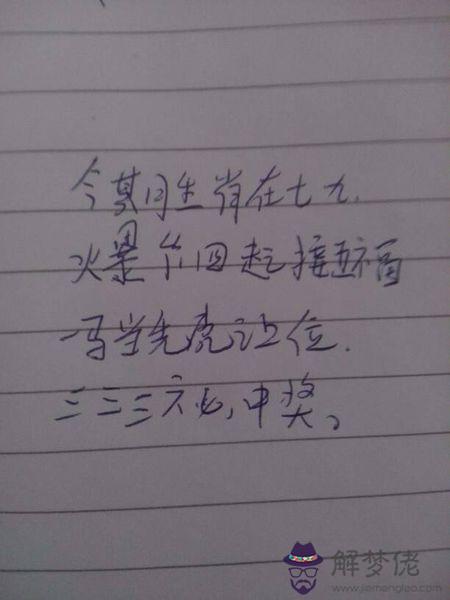 今期生肖在七九.
爆竹四起接五福
一马当先虎让位.
三三三六必,中奖、
解梦佬
www.jiemenglao.com